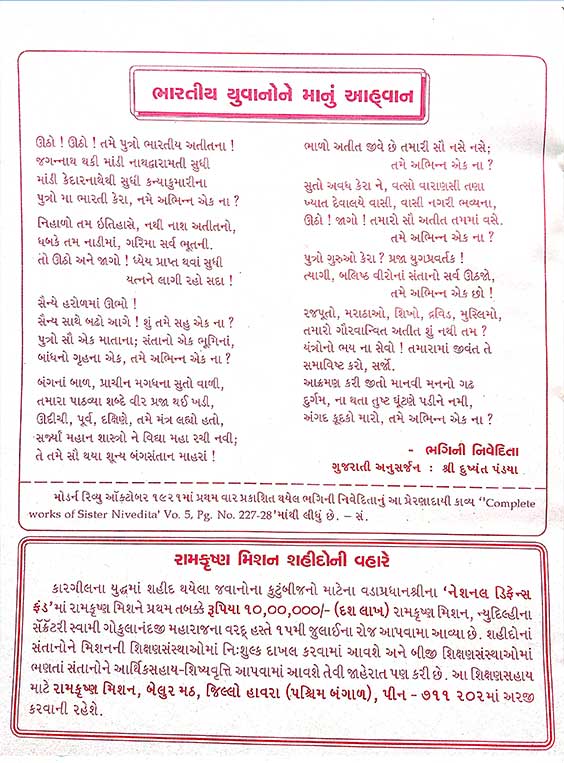 ભારતીય યુવાનોને માનું આહ્‌વાન
ઊઠો ! ઊઠો ! તમે પુત્રો ભારતીય અતીતના !
જગન્નાથ થકી માંડી નાથદ્વારામતી સુધી
માંડી કેદારનાથેથી સુધી કન્યાકુમારીના
પુત્રો મા ભારતી કેરા, નમે અભિન્ન એક ના ?
નિહાળો તમ ઇતિહાસે, નથી નાશ અતીતનો,
ધબકે તમ નાડીમાં, ગરિમા સર્વ ભૂતની.
તો ઊઠો અને જાગો ! ધ્યેય પ્રાપ્ત થવાં સુધી
યત્નને લાગી રહો સદા !
સૈન્યે હરોળમાં ઊભો !
સૈન્ય સાથે બઢો આગે ! શું તમે સહુ એક ના ?
પુત્રો સૌ એક માતાના; સંતાનો એક ભૂમિનાં,
બાંધનો ગૃહના એક, તમે અભિન્ન એક ના ?
બંગનાં બાળ, પ્રાચીન મગધના સુતો વાળી,
તમારા પાઠવ્યા શબ્દે વીર પ્રજા થઈ ખડી,
ઊદીચી, પૂર્વ, દક્ષિણે, તમે મંત્ર લહ્યો હતો,
સર્જ્યાં મહાન શાસ્ત્રો ને વિદ્યા મહા રચી નવી;
તે તમે સૌ થયા શૂન્ય બંગસંતાન માહરાં !
ભાળો અતીત જીવે છે તમારી સૌ નસે નસે;
તમે અભિન્ન એક ના ?
સુતો અવધ કેરા ને, વત્સો વારાણસી તણા
ખ્યાત દેવાલયે વાસી, વાસી નગરી ભવ્યના,
ઊઠો ! જાગો ! તમારો સૌ અતીત તમમાં વસે.
તમે અભિન્ન એક ના ?
પુત્રો ગુરુઓ કેરા ? પ્રજા યુગપ્રવર્તક !
ત્યાગી, બલિષ્ઠ વીરોનાં સંતાનો સર્વ ઊઠજો,
તમે અભિન્ન એક છો !
રજપૂતો, મરાઠાઓ, શિખો, દ્રવિડ, મુસ્લિમો,
તમારો ગૌરવાન્વિત અતીત શું નથી તમ ?
યંત્રોનો ભય ના સેવો ! તમારામાં જીવંત તે
સમાવિષ્ટ કરો, સર્જો.
આક્રમણ કરી જીતો માનવી મનનો ગઢ
દુર્ગમ, ના થતા તુષ્ટ ઘૂંટણે પડીને નમી,
અંગદ કૂદકો મારો, તમે અભિન્ન એક ના ?
- ભગિની નિવેદિતા
ગુજરાતી અનુસર્જન : શ્રી દુષ્યંત પંડયા
મોડર્ન રિવ્યુ ઑક્ટોબર ૧૯૨૧માં પ્રથમ વાર પ્રકાશિત થયેલ ભગિની નિવેદિતાનું આ પ્રેરણાદાયી કાવ્ય ''Complete
works of Sister Nivedita' Vo. 5, Pg. No. 227-28'માંથી લીધું છે. – સં.
રામકૃષ્ણ મિશન શહીદોની વહારે
કારગીલના યુદ્ધમાં શહીદ થયેલા જવાનોના કુટુંબીજનો માટેના વડાપ્રધાનશ્રીના 'નેશનલ ડિફેન્સ
ફંડ'માં રામકૃષ્ણ મિશને પ્રથમ તબક્કે રૂપિયા ૧૦,૦૦,૦૦૦/- (દશ લાખ) રામકૃષ્ણ મિશન, ન્યુદિલ્હીના
સૅક્રેટરી સ્વામી ગોકુલાનંદજી મહારાજના વરદ્ હસ્તે ૧૫મી જુલાઈના રોજ આપવામાં આવ્યા છે. શહીદોનાં
સંતાનોને મિશનની શિક્ષણસંસ્થાઓમાં નિઃશુલ્ક દાખલ કરવામાં આવશે અને બીજી શિક્ષણસંસ્થાઓમાં
ભણતાં સંતાનોને આર્થિકસહાય-શિષ્યવૃત્તિ આપવામાં આવશે તેવી જાહેરાત પણ કરી છે. આ શિક્ષણસહાય
માટે રામકૃષ્ણ મિશન, બેલુર મઠ, જિલ્લો હાવરા (પશ્ચિમ બંગાળ), પીન - ૭૧૧ ૨૦૨માં અરજી
કરવાની રહેશે.